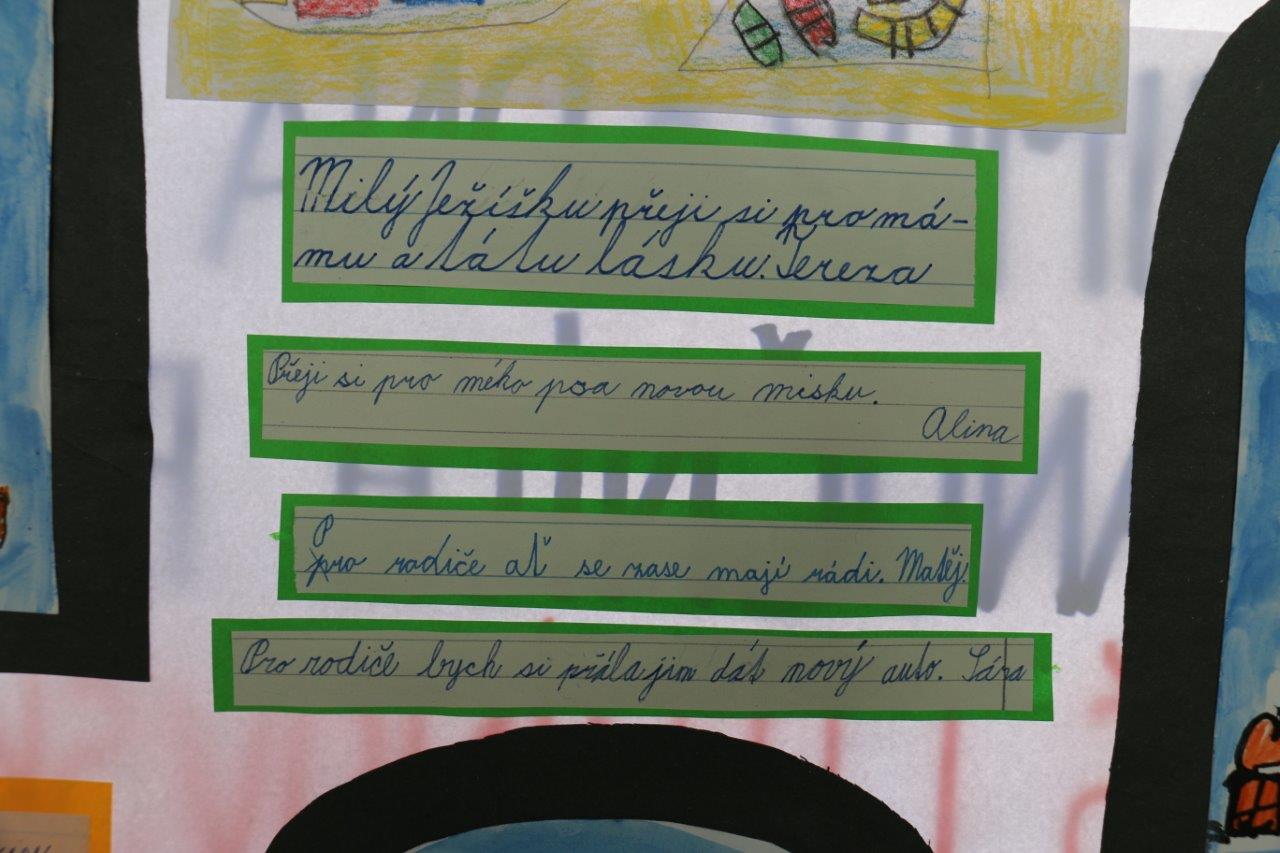 Milý Ježíšku přeji si pro má-
mu a tátu lásku. Tereza
Přeji si pro mého psa novou misku.
Alina
Pro rodiče ať se zase mají rádi. Matěj.
Pro rodičé bych si přála jim dát nový auto. Sára